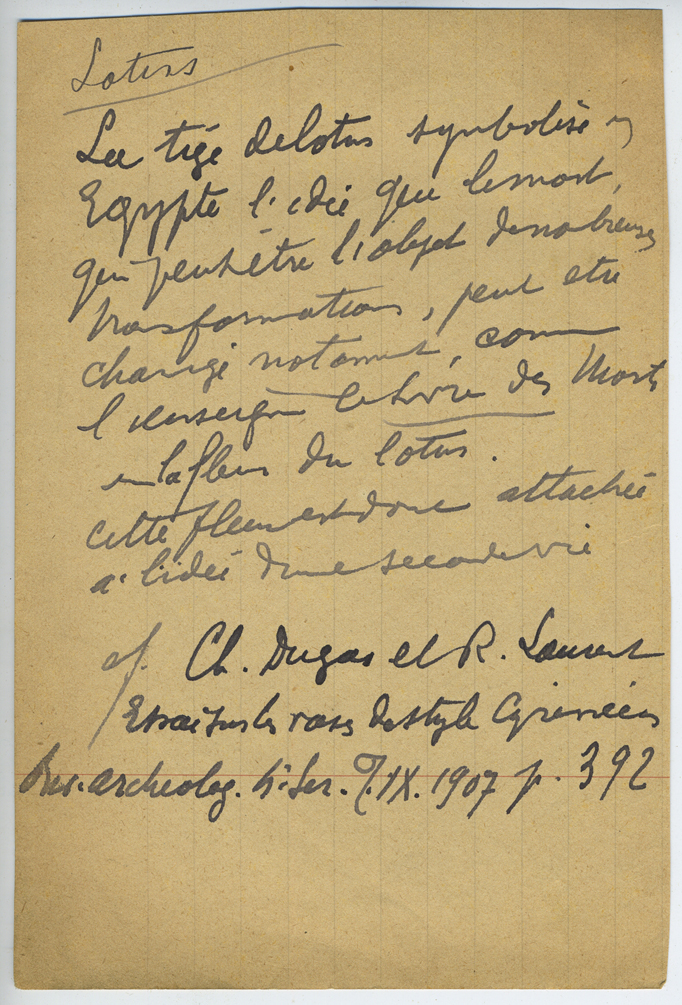 Lotus
La tige de lotus symbolise en
Egypte l'idée que le mort,
qui peut être l'objet de nombreuses
transformations, peut etre
changé notamment, comme
l'enseigne le Livre des Morts
en la fleur du lotus.
cette fleur est donc attachée
a l'idée d'une seconde vie
cf. Ch. Dugas et R. Laurent
Essai sur les vases de style Cyrénéen
Rev. archeolog. 4e Ser. T. IX. 1907 p. 392